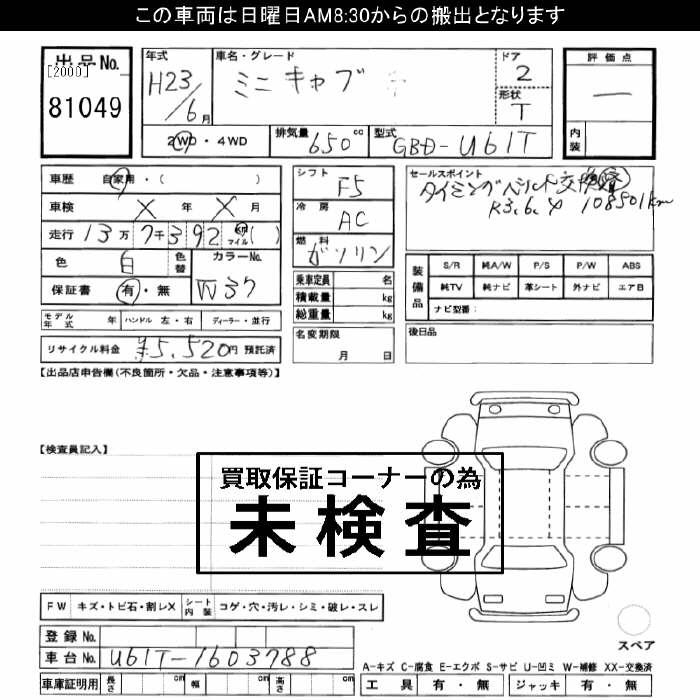 この車両は日曜日AM8:30からの搬出となります
出品No.
[2000]
81049
年式
H23/6月
車名・グレード
ミニキャブ
ドア
2
形状
T
評価点
—
内装
2WD・4WD
排気量 650 cc
型式 GBD-U61T
車歴 自家用・( )
車検 X 年 X 月
走行 13万7千392 km マイル ( )
色 白 色替 カラーNo.
W37
保証書 有・無
モデル年式 年 ハンドル 左・右 ディーラー・並行
リサイクル料金 ¥5,520円 預託済
シフト F5
冷房 AC
燃料 ガソリン
乗車定員 名
積載量 kg
総重量 kg
名変期限
月 日
セールスポイント
タイミングベルト交換
R3.6.4 108501km
装備品
S/R 純A/W P/S P/W ABS
純TV 純ナビ 革シート 外ナビ エアB
ナビ型番:
後日品
【出品店申告欄(不良箇所・欠品・注意事項等)】
【検査員記入】
買取保証コーナーの為
未検査
FW キズ・トビ石・割レX シート内装 コゲ・穴・汚レ・シミ・破レ・スレ
スペア
登録No.
車台No. U61T-1603788
車庫証明用 長さ cm 幅 cm 高さ cm
A-キズ C-腐食 E-エクボ S-サビ U-凹ミ W-補修 XX-交換済
工具 有・無 ジャッキ 有・無